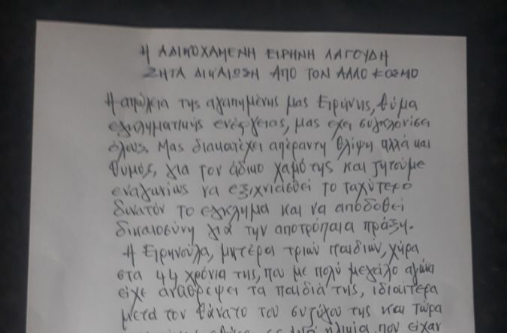 Η ΑΔΙΚΟΧΑΜΕΝΗ ΕΙΡΗΝΗ ΛΑΓΟΥΔΗ
ΖΗΤΑ ΔΙΚΑΙΩΣΗ ΑΠΟ ΤΟΝ ΑΛΛΟ ΚΟΣΜΟ
Η απώλεια της αγαπημένης μας Ειρήνης, θύμα
εγκληματικής ενέργειας, μας έχει συγκλονίσει
όλους. Μας διακατέχει απέραντη θλίψη αλλά και
θυμός, για τον άδικο χαμό της και ζητούμε
εναγωνίως να εξιχνιασθεί το ταχύτερο
δυνατόν το έγκλημα και να αποδοθεί
δικαιοσύνη για την αποτρόπαια πράξη.
Η Ειρηνούλα, μητέρα τριών παιδιών, χήρα
στα 44 χρόνια της, που με πολύ μεγάλο αγώνα
είχε αναθρέψει τα παιδιά της, ιδιαίτερα
μετά τον θάνατο του συζύγου της και τώρα
που είχαν